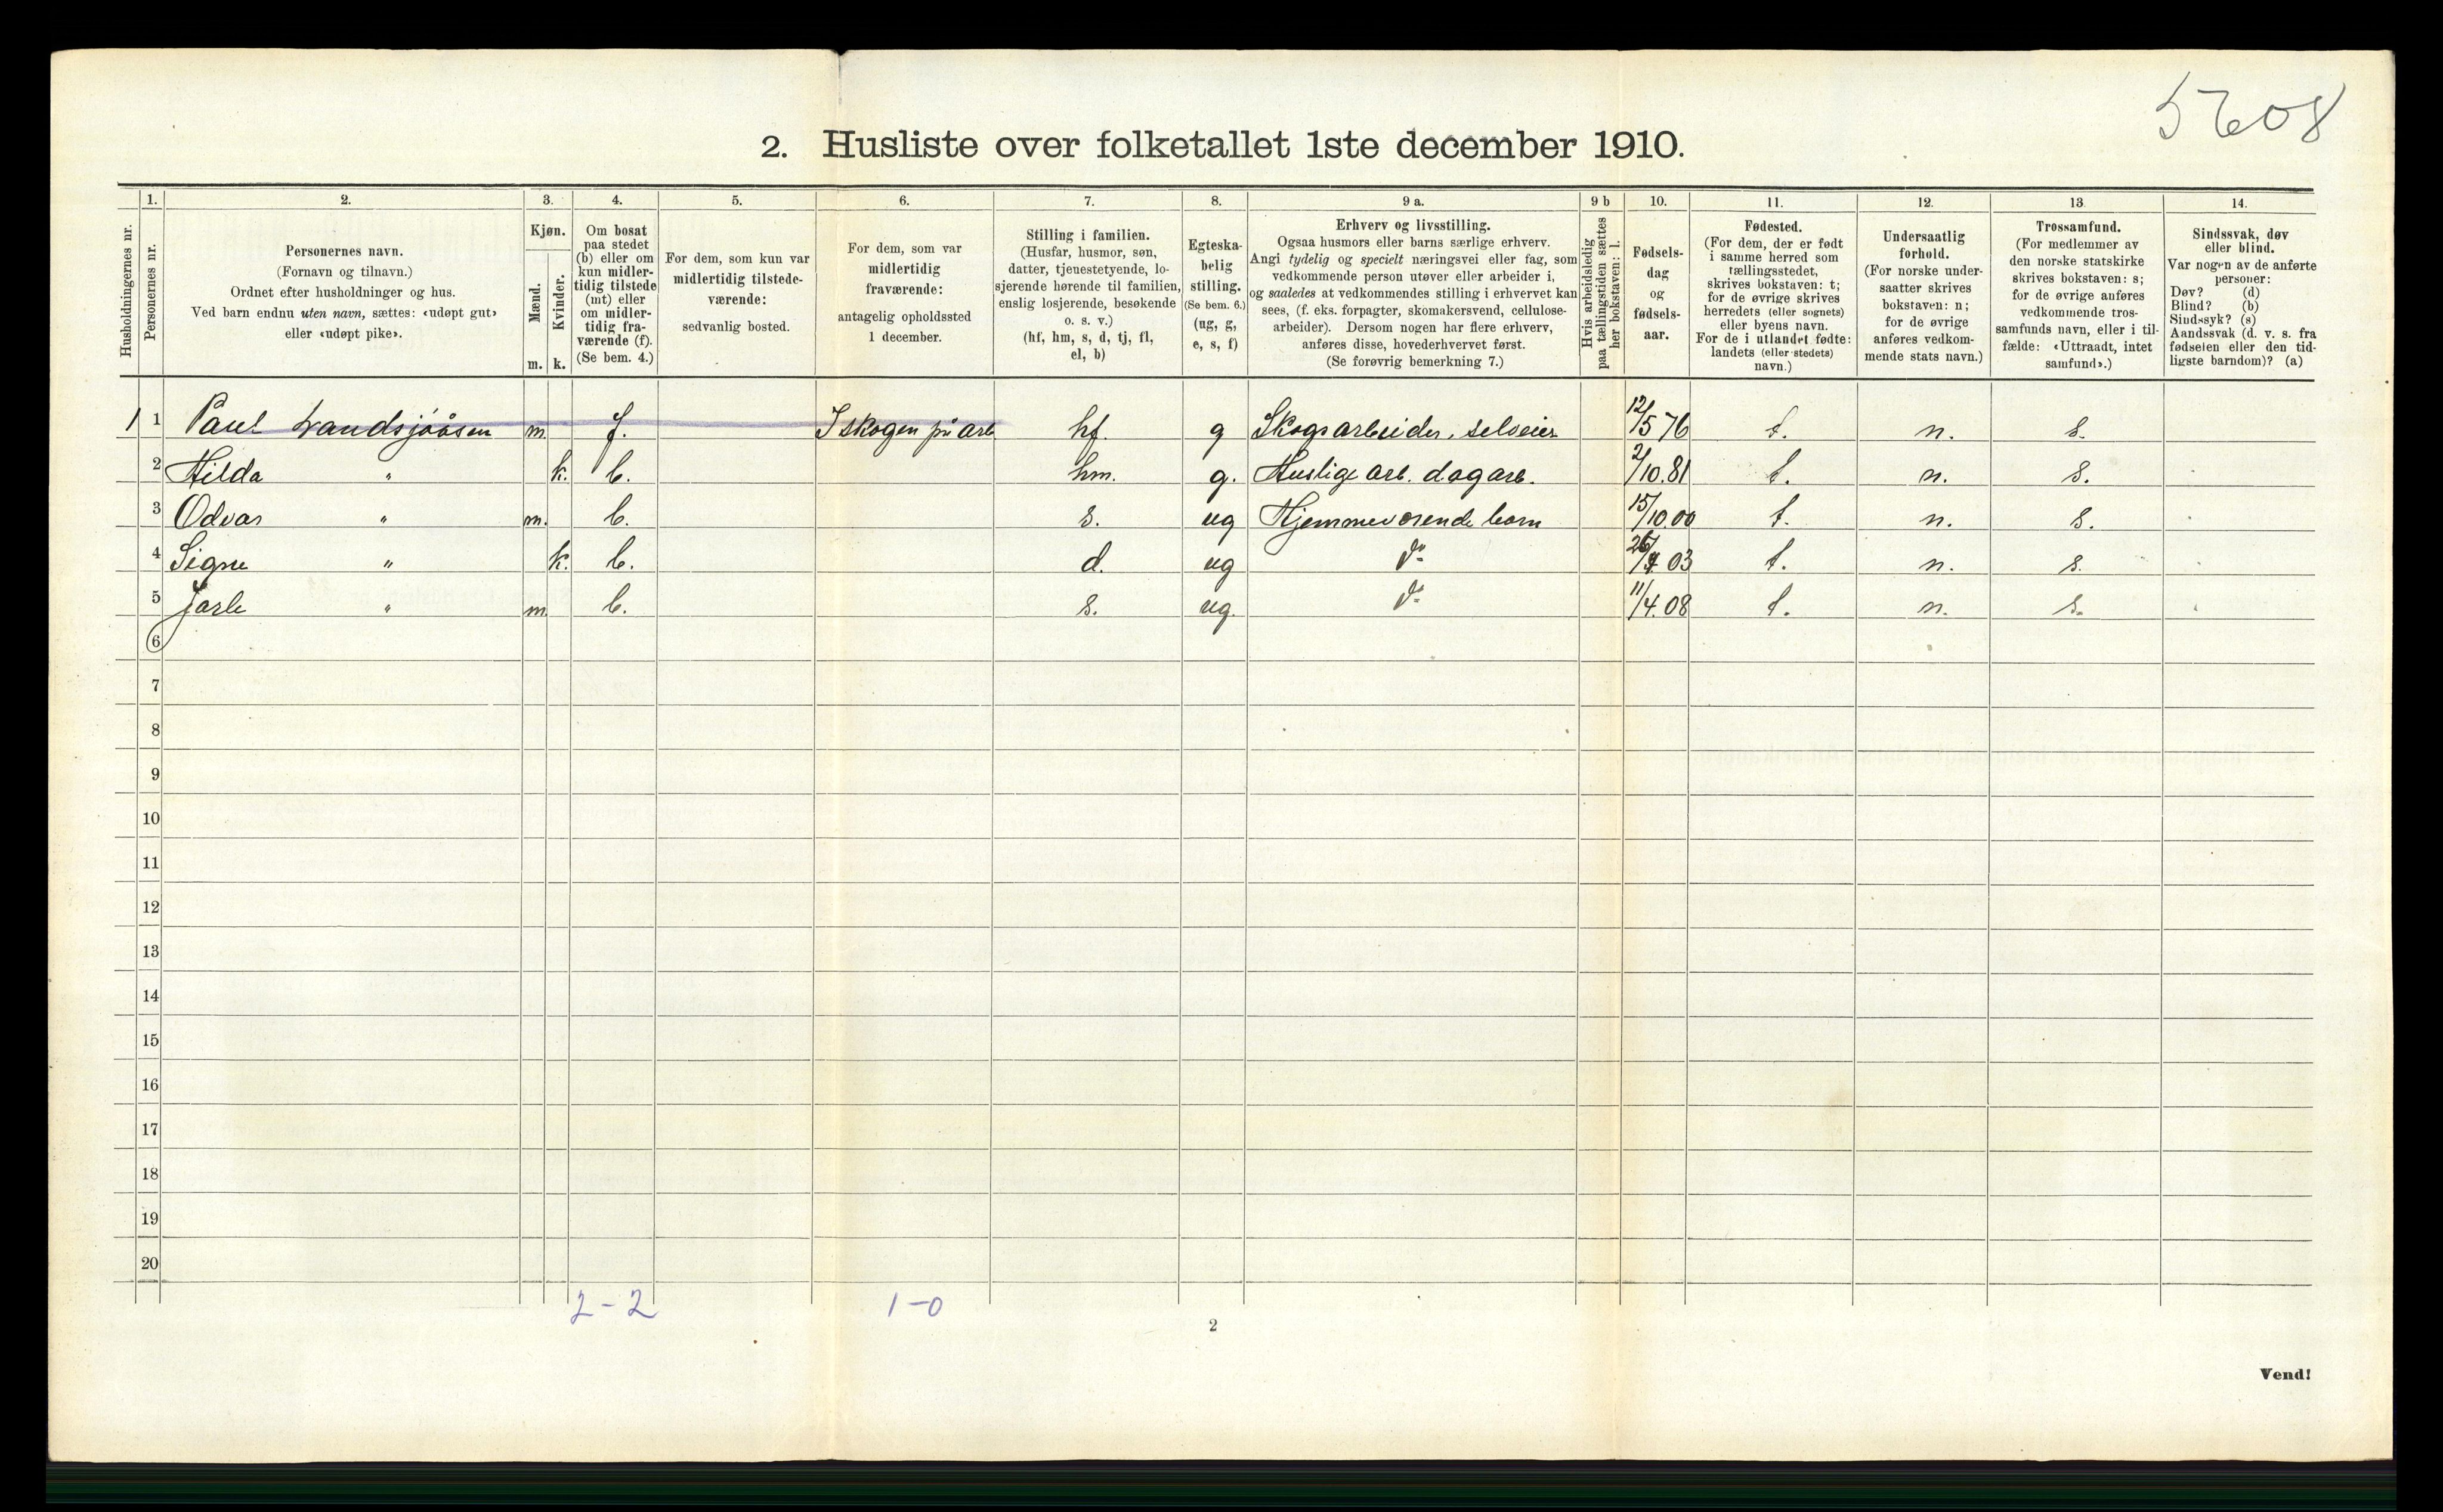 5608
2. Husliste over folketallet 1ste december 1910.
Husholdningernes nr.
1.
Personernes nr.
2.
Personernes navn.
(Fornavn og tilnavn.)
Ordnet efter husholdninger og hus.
Ved barn endnu uten navn, sættes: «udøpt gut»
eller «udøpt pike».
3.
Kjøn.
Mænd.
Kvinder.
m. k.
4.
Om bosat
paa stedet
(b) eller om
kun midler-
tidig tilstede
(mt) eller
om midler-
tidig fra-
værende (f).
(Se bem. 4.)
5.
For dem, som kun var
midlertidig tilstede-
værende:
sedvanlig bosted.
6.
For dem, som var
midlertidig
fraværende:
antagelig opholdssted
1 december.
7.
Stilling i familien.
(Husfar, husmor, søn,
datter, tjenestetyende, lo-
sjerende hørende til familien,
enslig losjerende, besøkende
o. s. v.)
(hf, hm, s, d, tj, fl,
el, b)
8.
Egteska-
belig
stilling.
(Se bem. 6.)
(ug, g,
e, s, f)
9 a.
Erhverv og livsstilling.
Ogsaa husmors eller barns særlige erhverv.
Angi tydelig og specielt næringsvei eller fag, som
vedkommende person utøver eller arbeider i,
og saaledes at vedkommendes stilling i erhvervet kan
sees, (f. eks. forpagter, skomakersvend, cellulose-
arbeider). Dersom nogen har flere erhverv,
anføres disse, hovederhvervet først.
(Se forøvrig bemerkning 7.)
9 b
Hvis arbeidsledig
paa tællingstiden sættes
her bokstaven: l.
10.
Fødsels-
dag
og
fødsels-
aar.
11.
Fødested.
(For dem, der er født
i samme herred som
tællingsstedet,
skrives bokstaven: t;
for de øvrige skrives
herredets (eller sognets)
eller byens navn.
For de i utlandet fødte:
landets (eller stedets)
navn.)
12.
Undersaatlig
forhold.
(For norske under-
saatter skrives
bokstaven: n;
for de øvrige
anføres vedkom-
mende stats navn.)
13.
Trossamfund.
(For medlemmer av
den norske statskirke
skrives bokstaven: s;
for de øvrige anføres
vedkommende tros-
samfunds navn, eller i til-
fælde: «Uttraadt, intet
samfund».)
14.
Sindssvak, døv
eller blind.
Var nogen av de anførte
personer:
Døv? (d)
Blind? (b)
Sindssyk? (s)
Aandssvak (d. v. s. fra
fødselen eller den tid-
ligste barndom)? (a)
1 1 Paul Landsjøåsen m. f. I skogen på arb hf. g Skogsarbeider, selveier 12/5 76 t. n. s.
2 Hilda " k. b. hm. g. Huslige arb. dagarb. 2/10.81 t. n. s.
3 Odvar " m. b. s. ug Hjemmeværende barn 15/10.00 t. n. s.
4 Signe " k. b. d. ug do 03 t. n. s.
5 Jarle " m b. s. ug. do 11/4.08 t. n. s.
6
7
8
9
10
11
12
13
14
15
16
17
18
19
20
2-2 1-0
2
Vend!